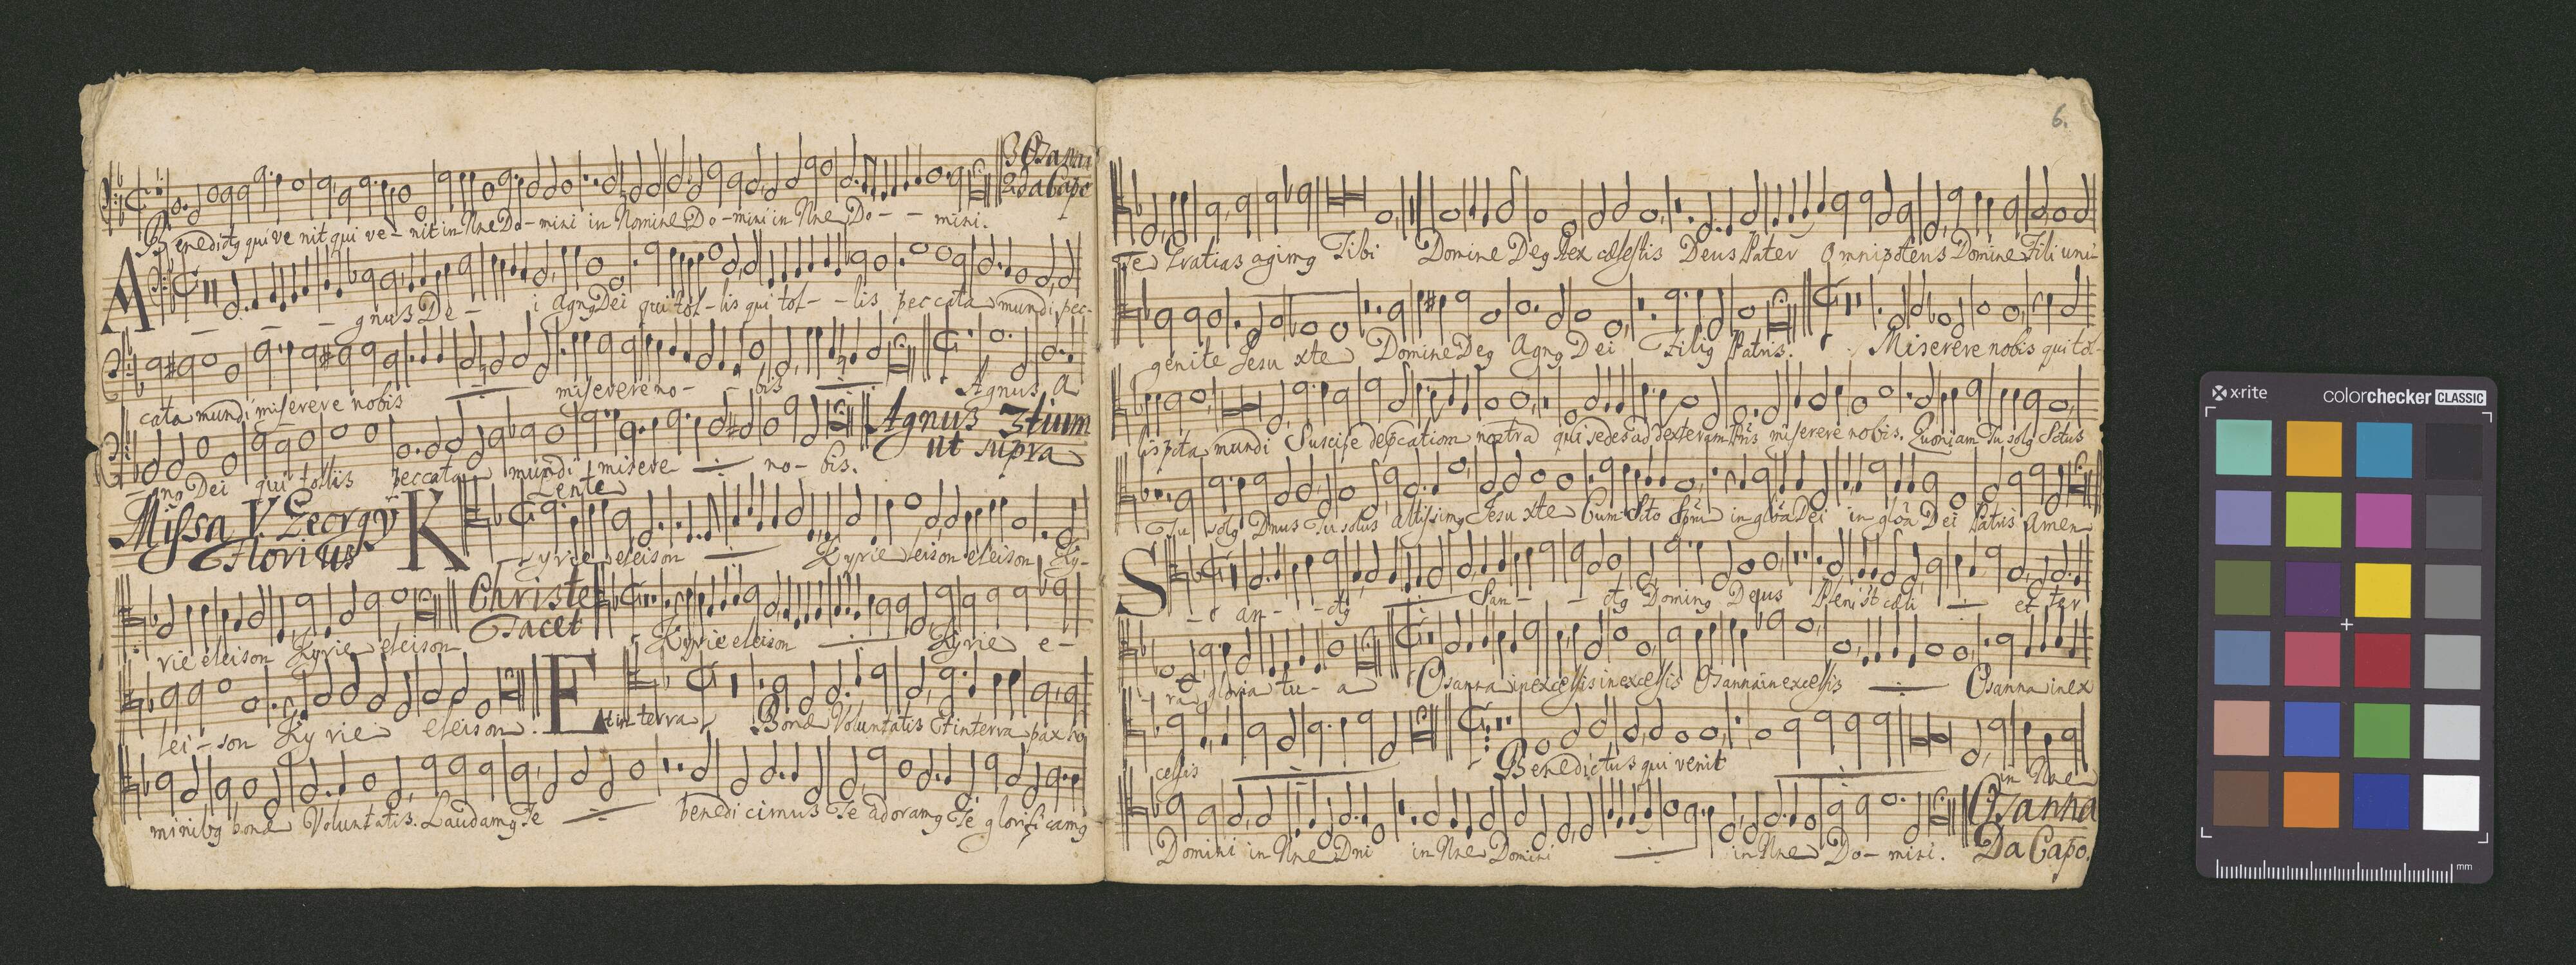 Osanna
2 da Capo
Benedictg qui ve nit qui ve - nit in Nne Do - mini in Nomine Do - mini in Nne Do - - mini.
A - - - gnus De - i agng Dei qui tol - lis qui tol - - lis peccata mundi pec-
cata mundi miserere nobis miserere no - - bis Agnus A
- gno Dei qui tollis peccata mundi misere no - bis.
Agnus 3tium
ut supra
Missa V. Georgÿ
Florius
Lente
Kyrie eleison Kyrie leison eleison Ky-
rie eleison Kyrie eleison
Christe
Tacet
Kyrie eleison Kyrie e-
lei - son Kyrie eleison.
Et in terra Bonæ Voluntatis Et in terra pax ho
minibg bonæ Voluntatis. Laudamg Te benedicimus Te adoramg Te glorificamg
6.
Te Gratias agimg Tibi Domine Deg Rex cœlestis Deus Pater Omnipotens Domine Fili uni-
genite Jesu xte Domine Deg Agng Dei Filig Patris. Miserere nobis qui tol-
lis pcta mundi Suscipe depcationem nostra qui sedes ad dexteram Pris miserere nobis. Quoniam Tu solg Sctus
Tu solg Dnus Tu solus altissimg Jesu xte Cum Scto Spiri in glōa Dei in glōa Dei Patris Amen
S - an - - ctg San - - ctg Doming Deus Pleni st cœli et ter
ra gloria tu - a Osanna in excelsis in excelsis Osanna in excelsis Osanna in ex
celsis Benedictus qui venit in Nne
Domini in Nne Dni in Nne Domini in Nne Do - mini.
Osanna
Da Capo.
x-rite
colorchecker CLASSIC
mm